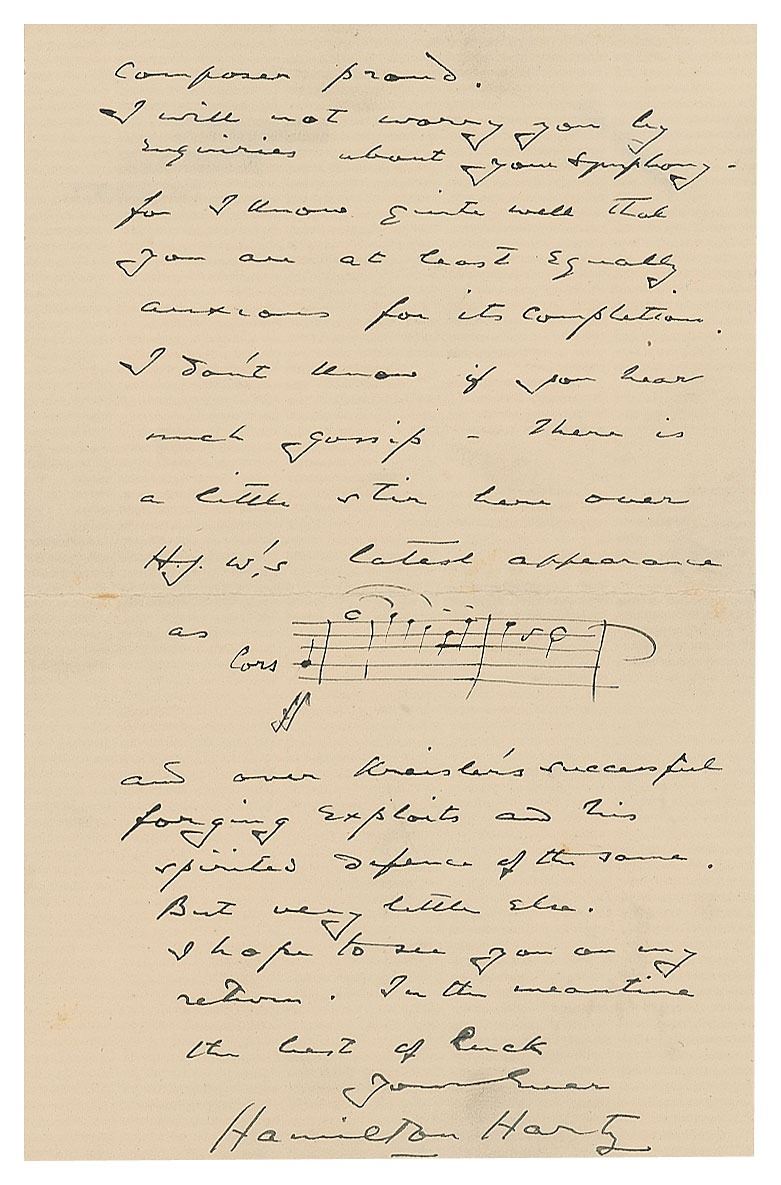 composer proud.
I will not worry you by
enquiries about your Symphony -
for I know quite well that
you are at least equally
anxious for its completion.
I don't know if you hear
much gossip - There is
a little stir here over
Hy. W's latest appearance
as
Cors
ff
and over Kreisler's successful
forging exploits and his
spirited defence of the same.
But very little else.
I hope to see you on my
return. In the meantime
the best of luck
Yours ever
Hamilton Harty